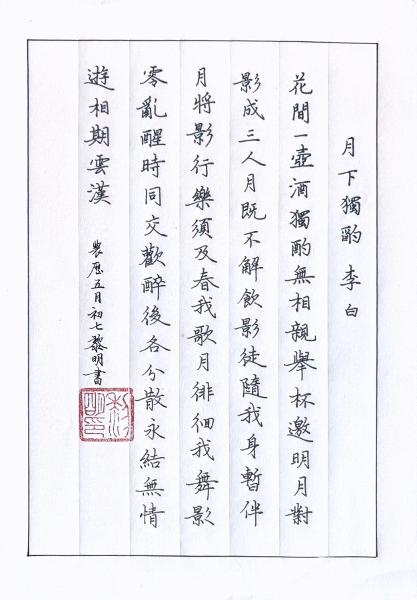 月下獨酌 李白
花間一壺酒獨酌無相親舉杯邀明月對
影成三人月既不解飲影徒隨我身暫伴
月將影行樂須及春我歌月徘徊我舞影
零亂醒時同交歡醉後各分散永結無情
遊相期雲漢
農厯五月初七黎明書